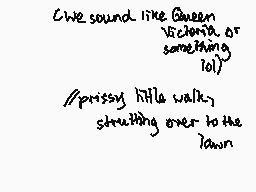 (we sound like Queen
Victoria or
something
lol)
//prissy little walk,
strutting over to the
lawn